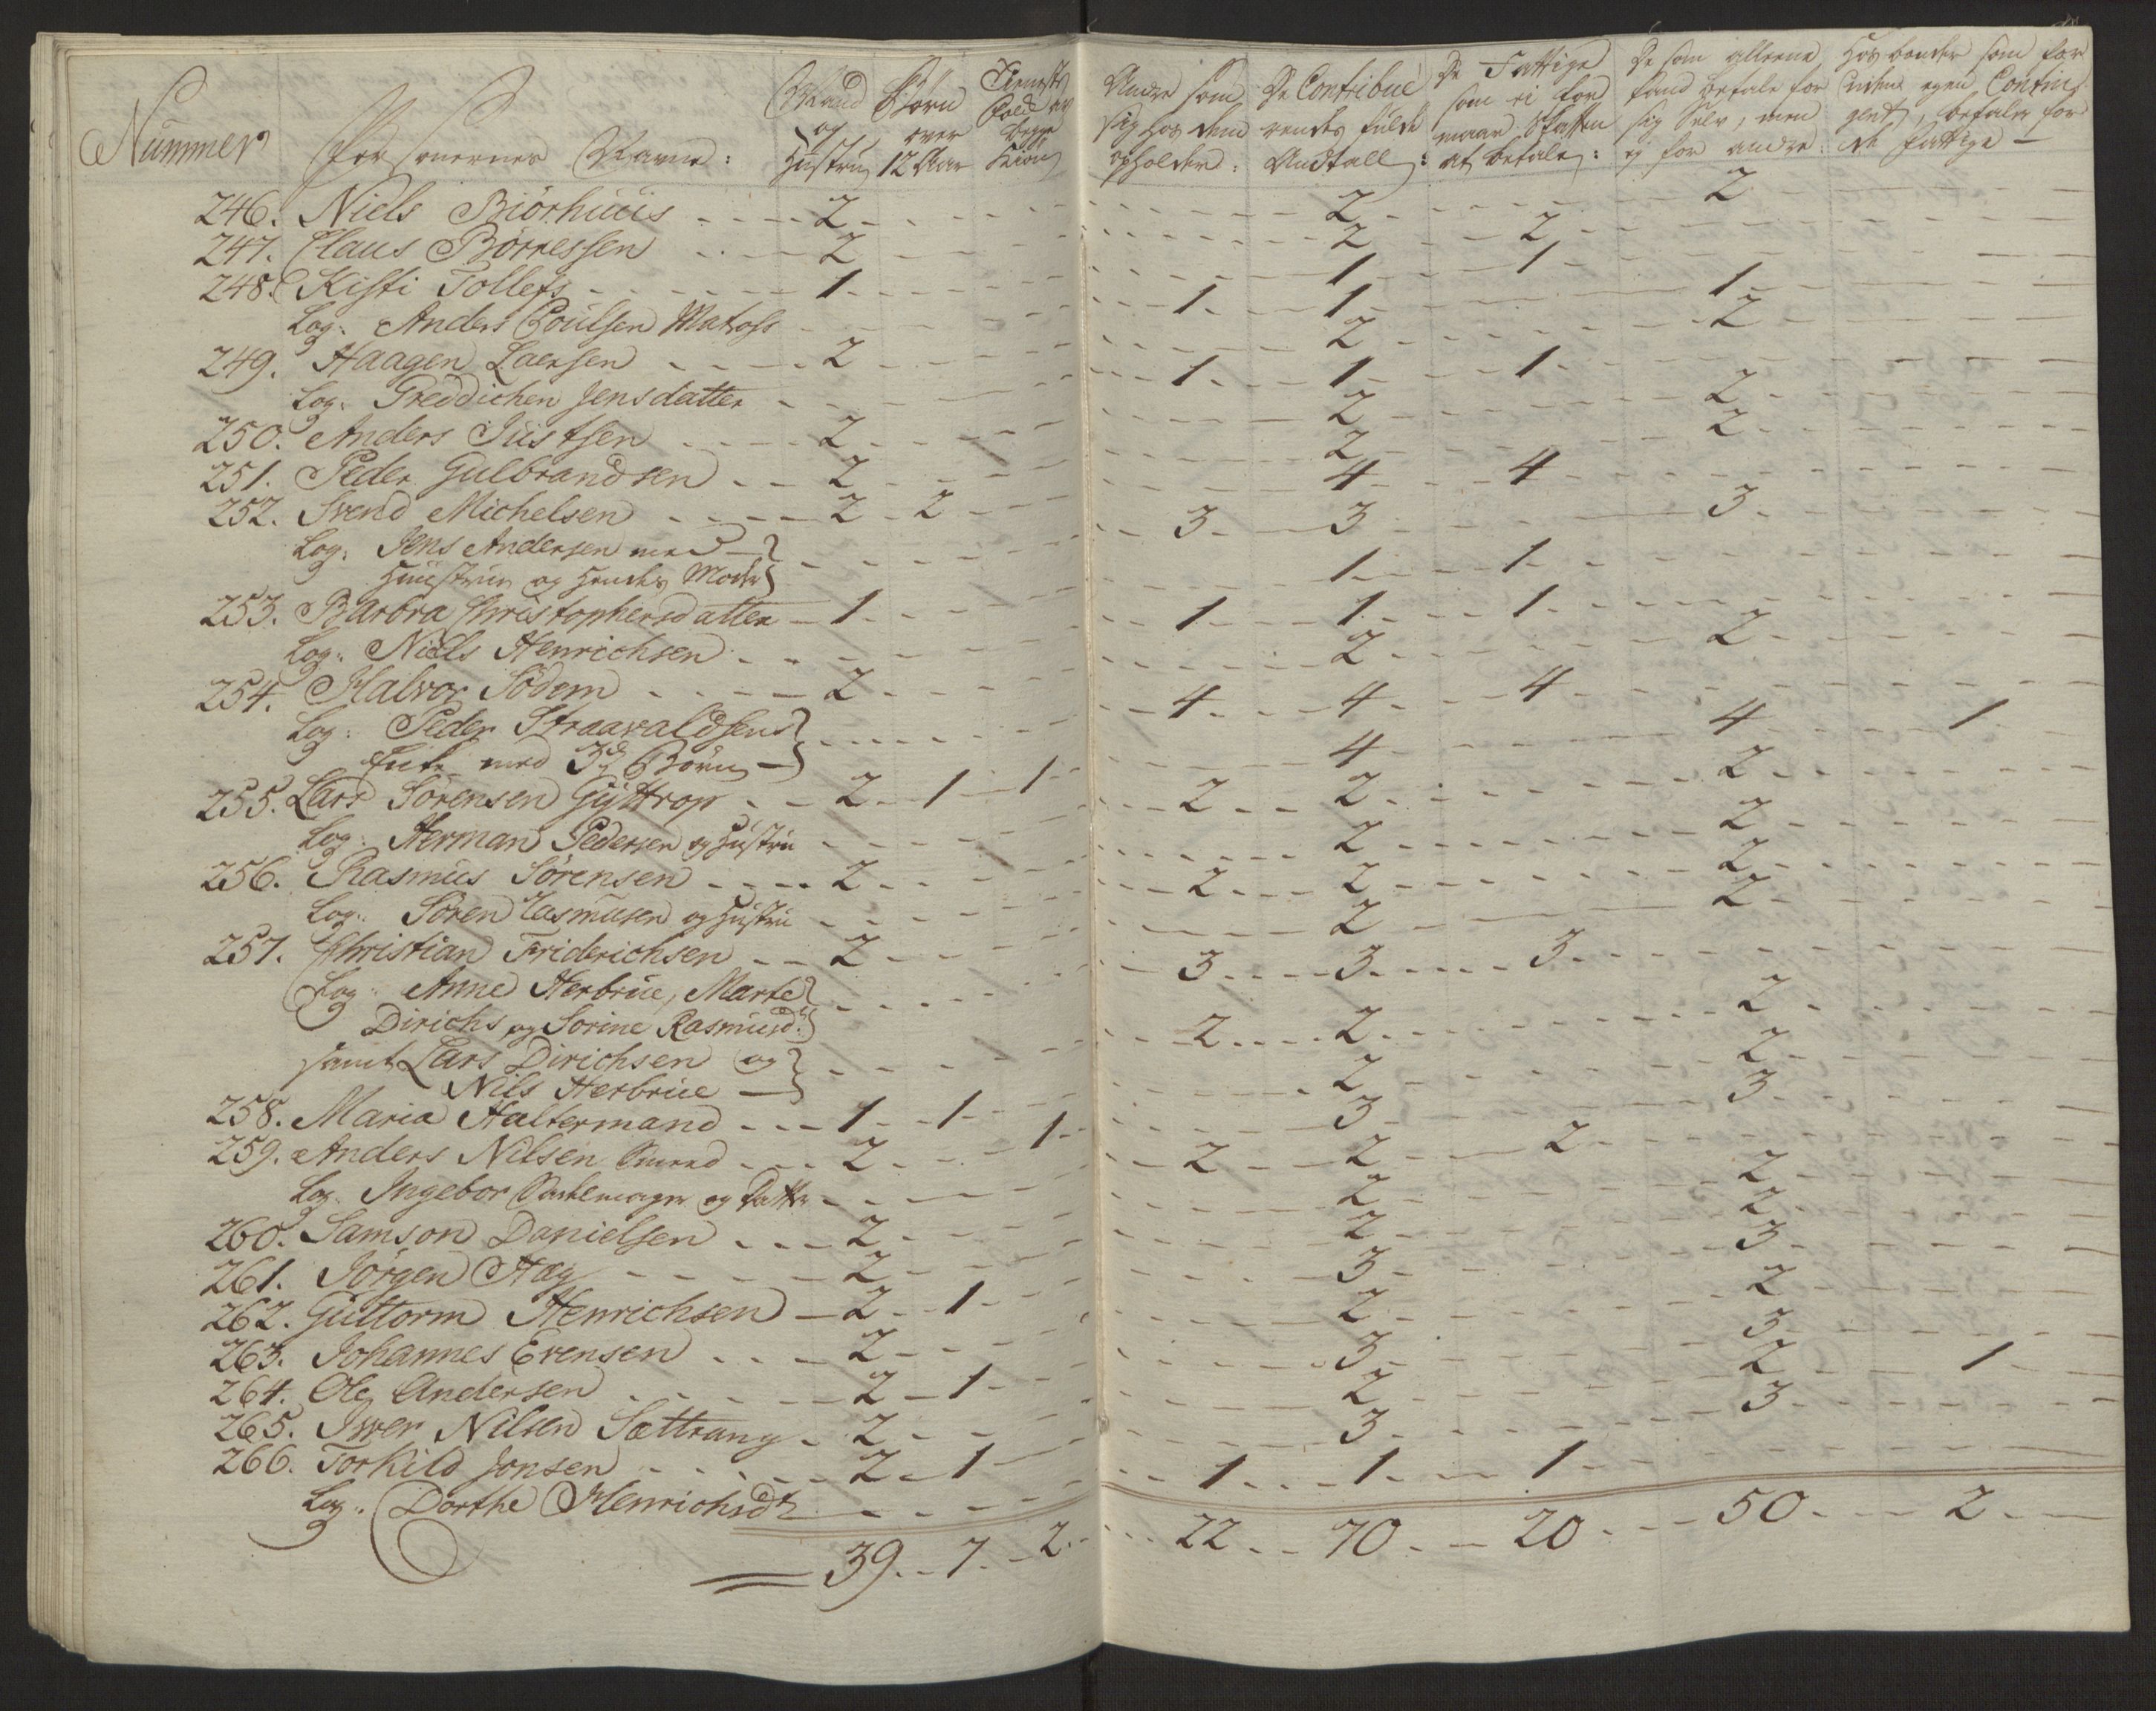 Nummer Persouernes Navne: Mand og Hustru Börn over 12 Aar Tieneste Folk av begge Kiön Andre som sig hos dem opholder: De Contribuerendes fulde Andtall: De Fattige som ei formaar Skatten at betale: De som alleene kand betale for sig Selv, men ej for andre: Hosbonder som for uden egen Contingent, betaler for de fattige
246. Niels Biörhuus 2 2 2
247. Claus Börressen 2 2 2
248. Kisti Tollefs 1 1 1
Log: Anders Poulsen Matros 1 1 1
249. Haagen Laersen 2 2 2
Log: Freddichen Jensdatter 1 1 1
250. Anders Justsen 2 2 2
251. Peder Gulbrandsen 2 2 2
252. Svend Michelsen 2 2 4 4
Log: Jens Andersen med
Huustrue og Hendes Moder 3 3 3
253. Barbra Christophersdatter 1 1 1
Log: Niels Henrichsen 1 1 1
254. Halvor Södem 2 2 2
Log: Peder Straavaldsens
Enke med 3de Börn 4 4 4
255. Lars Sörensen Gyttrop 2 1 1 4 4 1
Log: Herman Pedersen og Hustru 2 2 2
256. Rasmus Sörensen 2 2 2
Log: Sören Rasmusen og Hustru 2 2 2
257. Christian Friderichsen 2 2 2
Log: Anne Herbrue, Marte
Dirichs og Sorine Rasmusd: 3 3 3
samt Lars Dirichsen og
Nils Herbrue 2 2 2
258. Maria Haltermand 1 1 2 2
259. Anders Nilsen Smed 2 1 3 3
Log: Ingebor og Datter 2 2 2
260. Samson Danielsen 2 2 2
261. Jörgen Høy 2 2 2
262. Guttorm Henrichsen 2 1 3 3
263. Johannes Evensen 2 2 2
264. Ole Andersen 2 1 3 3
265. Iwer Nilsen Sættrang 2 2 2 1
266. Torkild Jonsen 2 1 3 3
Log: Dorthe Henrichsdt 1 1 1
39 7 2 22 70 20 50 2